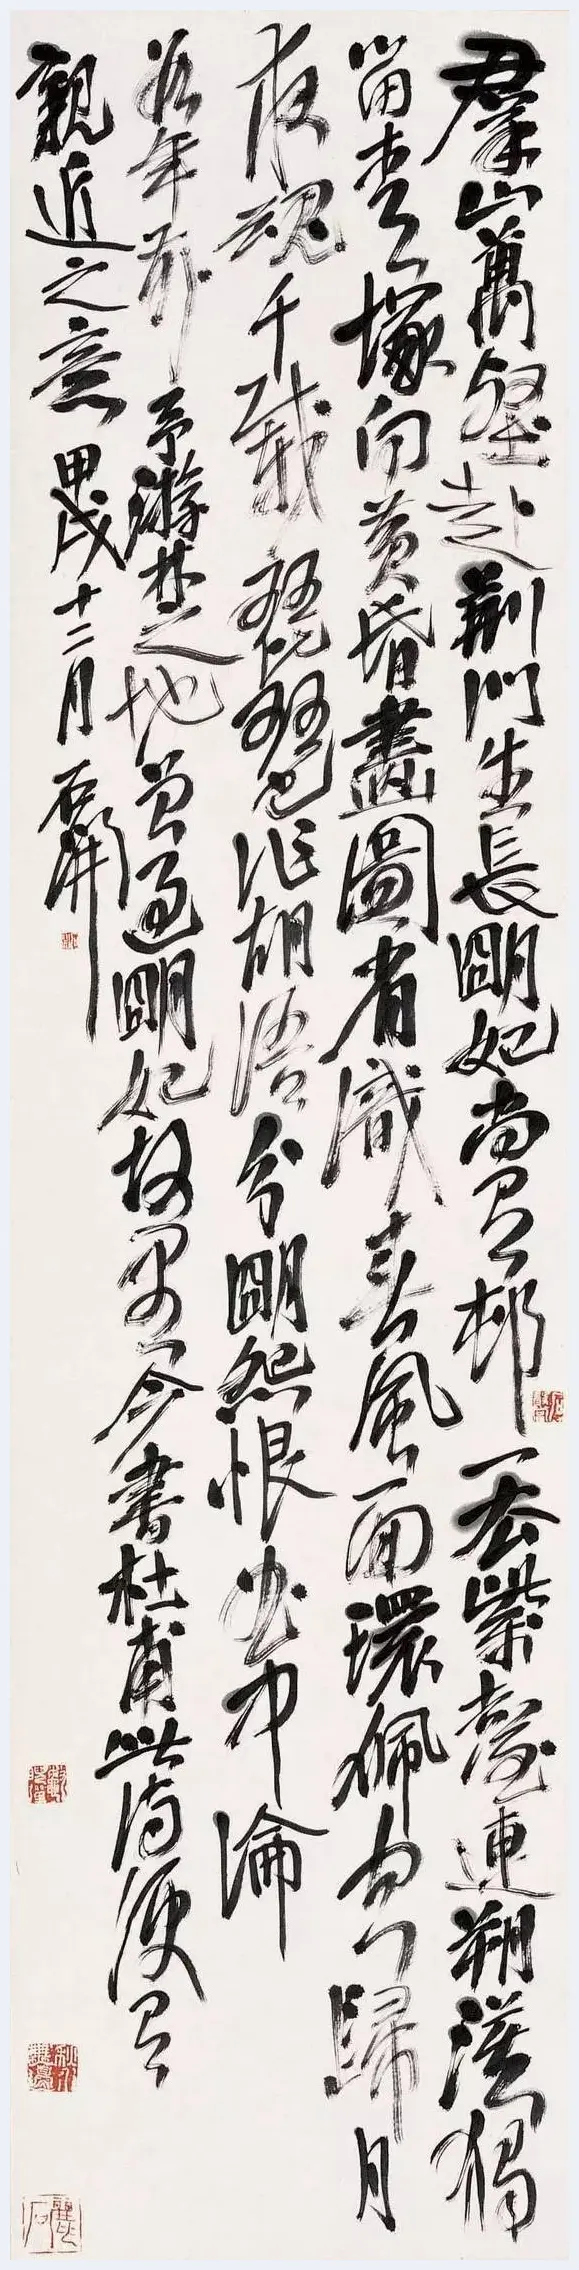 羣山萬壑赴荆門生長朙妃尚有邨一去紫臺連朔漠獨
留青塚向黃昏畫圖省識春風面環佩空歸月
夜魂千載琵琶作胡語分朙怨恨曲中論
年前予游楚之地曾過朙妃故里今書杜甫此詩便有
親近之意甲戌十二月石開